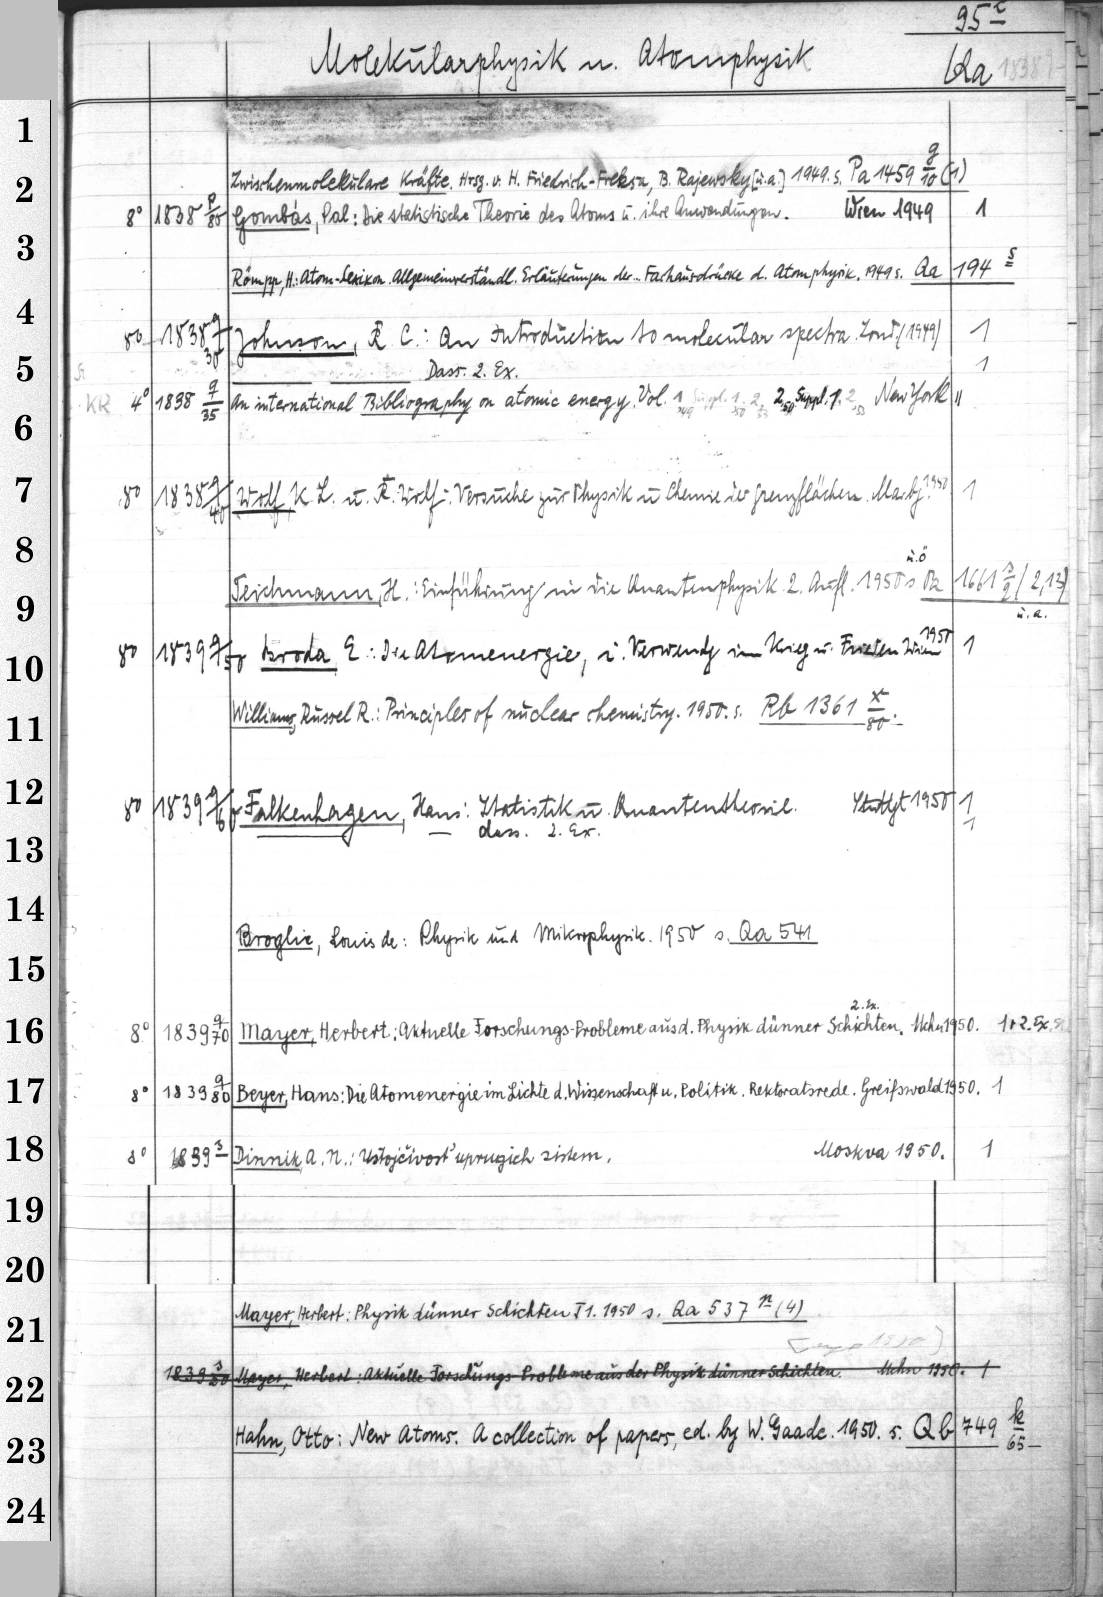 95r
Molekularphysik u. Atomphysik
Qa 1838
1
Zwischenmolekulare Kräfte. Hrsg. v. H. Friedrich-Freksa, B. Rajewsky [u.a.] 1949. s. Pa 1459 g/10 (1)
2
8° 1838 p/80 Gombás, Pal: Die statistische Theorie des Atoms u. ihre Anwendungen. Wien 1949 1
3
Römpp, H.: Atom-Lexikon. Allgemeinverständl. Erläuterungen der.. Fachausdrücke d. Atomphysik. 1949 s. Qa 194 s
4
80 1838 q/30 Johnson, R. C.: An Introduction to molecular spectra. Lond. (1949) 1
5
Dass. 2. Ex. 1
KR 4° 1838 q/35 An international Bibliography on atomic energy. Vol. 1 Suppl. 1. 2 2 Suppl. 1. 2 New York "
6
7
80 1838 q/40 Wolf, K. L. u. R. Wolf: Versuche zur Physik u Chemie der Grenzflächen. Marbg. 1950 1
8
u. ö
Teichmann, H.: Einführung in die Quantenphysik. 2. Aufl. 1950 s Pa 1661 s/2 (2,13)
9
u. a.
80 1839 q/50 Broda, E.: Die Atomenergie, i. Verwendg im Krieg u. Frieden Wien 1950 1
10
Williams, Russel R.: Principles of nuclear chemistry. 1950. s. Rb 1361 x/80.
11
12
80 1839 q/60 Falkenhagen, Hans: Statistik u. Quantentheorie. Stuttgt 1950 1
dass. 2. Ex. 1
13
14
Broglie, Louis de: Physik und Mikrophysik. 1950 s. Qa 541
15
2. Ex.
16
8° 1839 q/70 Mayer, Herbert: Aktuelle Forschungs-Probleme aus d. Physik dünner Schichten. Mchn 1950. 1+2. Ex.
17
8° 1839 q/80 Beyer, Hans: Die Atomenergie im Lichte d. Wissenschaft u. Politik. Rektoratsrede. Greifswald 1950. 1
18
8° 1839 s Dinnik, A. N.: Ustojčivost' uprugich sistem. Moskva 1950. 1
19
20
Mayer, Herbert: Physik dünner Schichten T 1. 1950 s. Qa 537 n (4)
21
22
1839 s/20 Mayer, Herbert: Aktuelle Forschungs-Probleme aus der Physik dünner Schichten. Mchn 1950. 1
23
Hahn, Otto: New Atoms. A collection of papers, ed. by W. Gaade. 1950. s. Qb 749 k/65
24